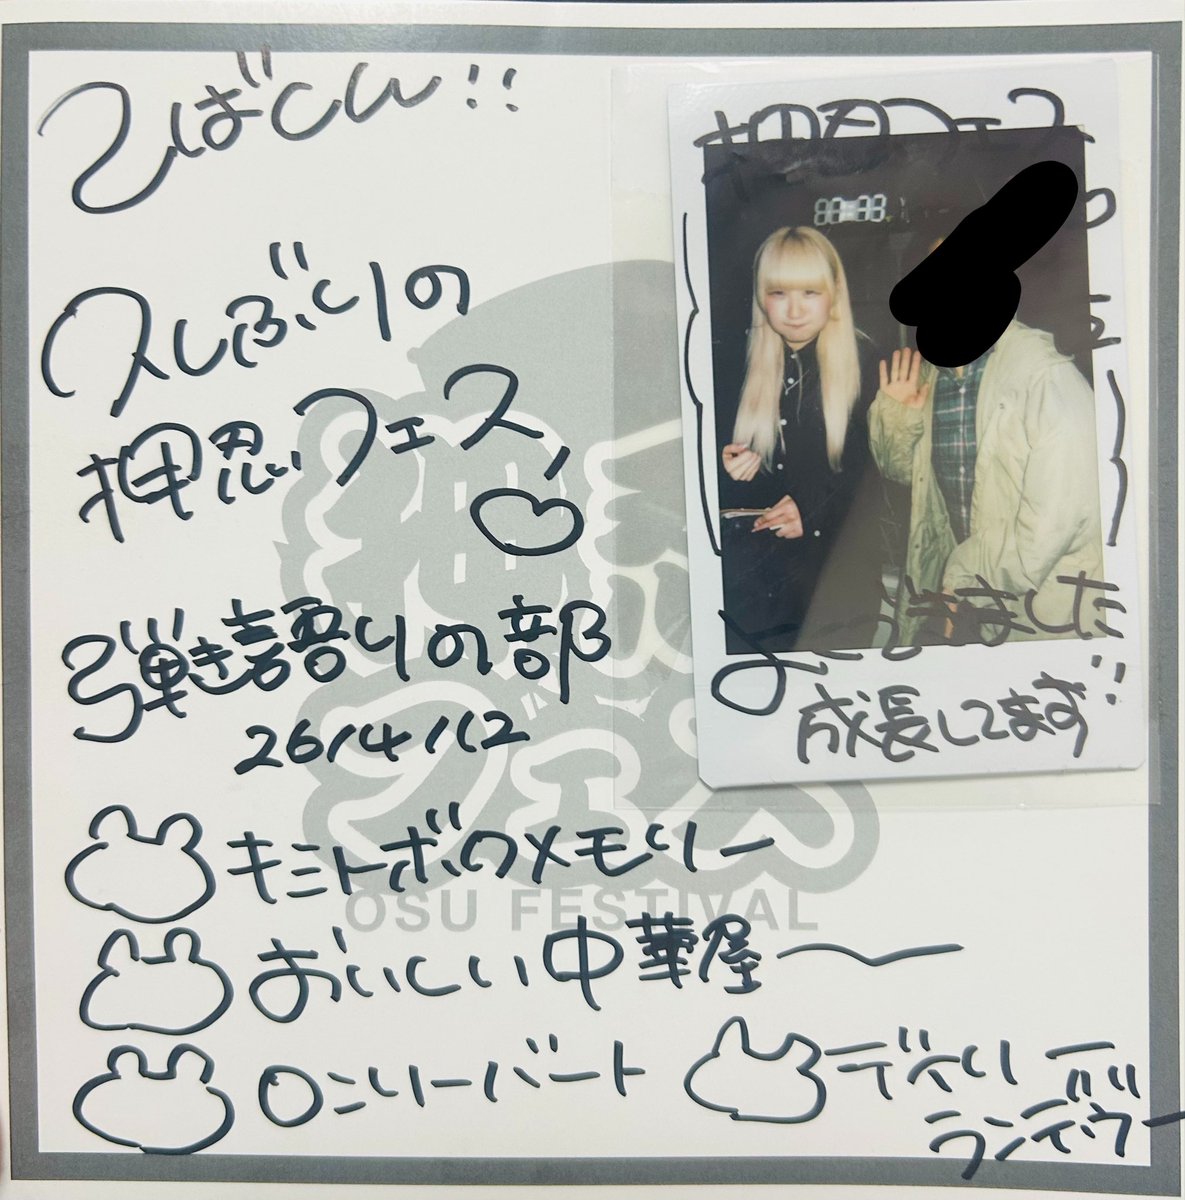 こばくん!!
久しぶりの
押忍フェス
弾き語りの部
26/4/12
キミトボクメモリー
おいしい中華屋〜
ロンリーバート
デイリー
ランデヴー
押忍フェス
ました
成長してます!!
OSU FESTIVAL